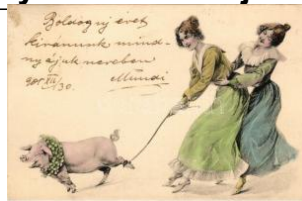 Boldog uj evet
kivanunk mind-
nyájuk nevében
905 XII/30. Mundi